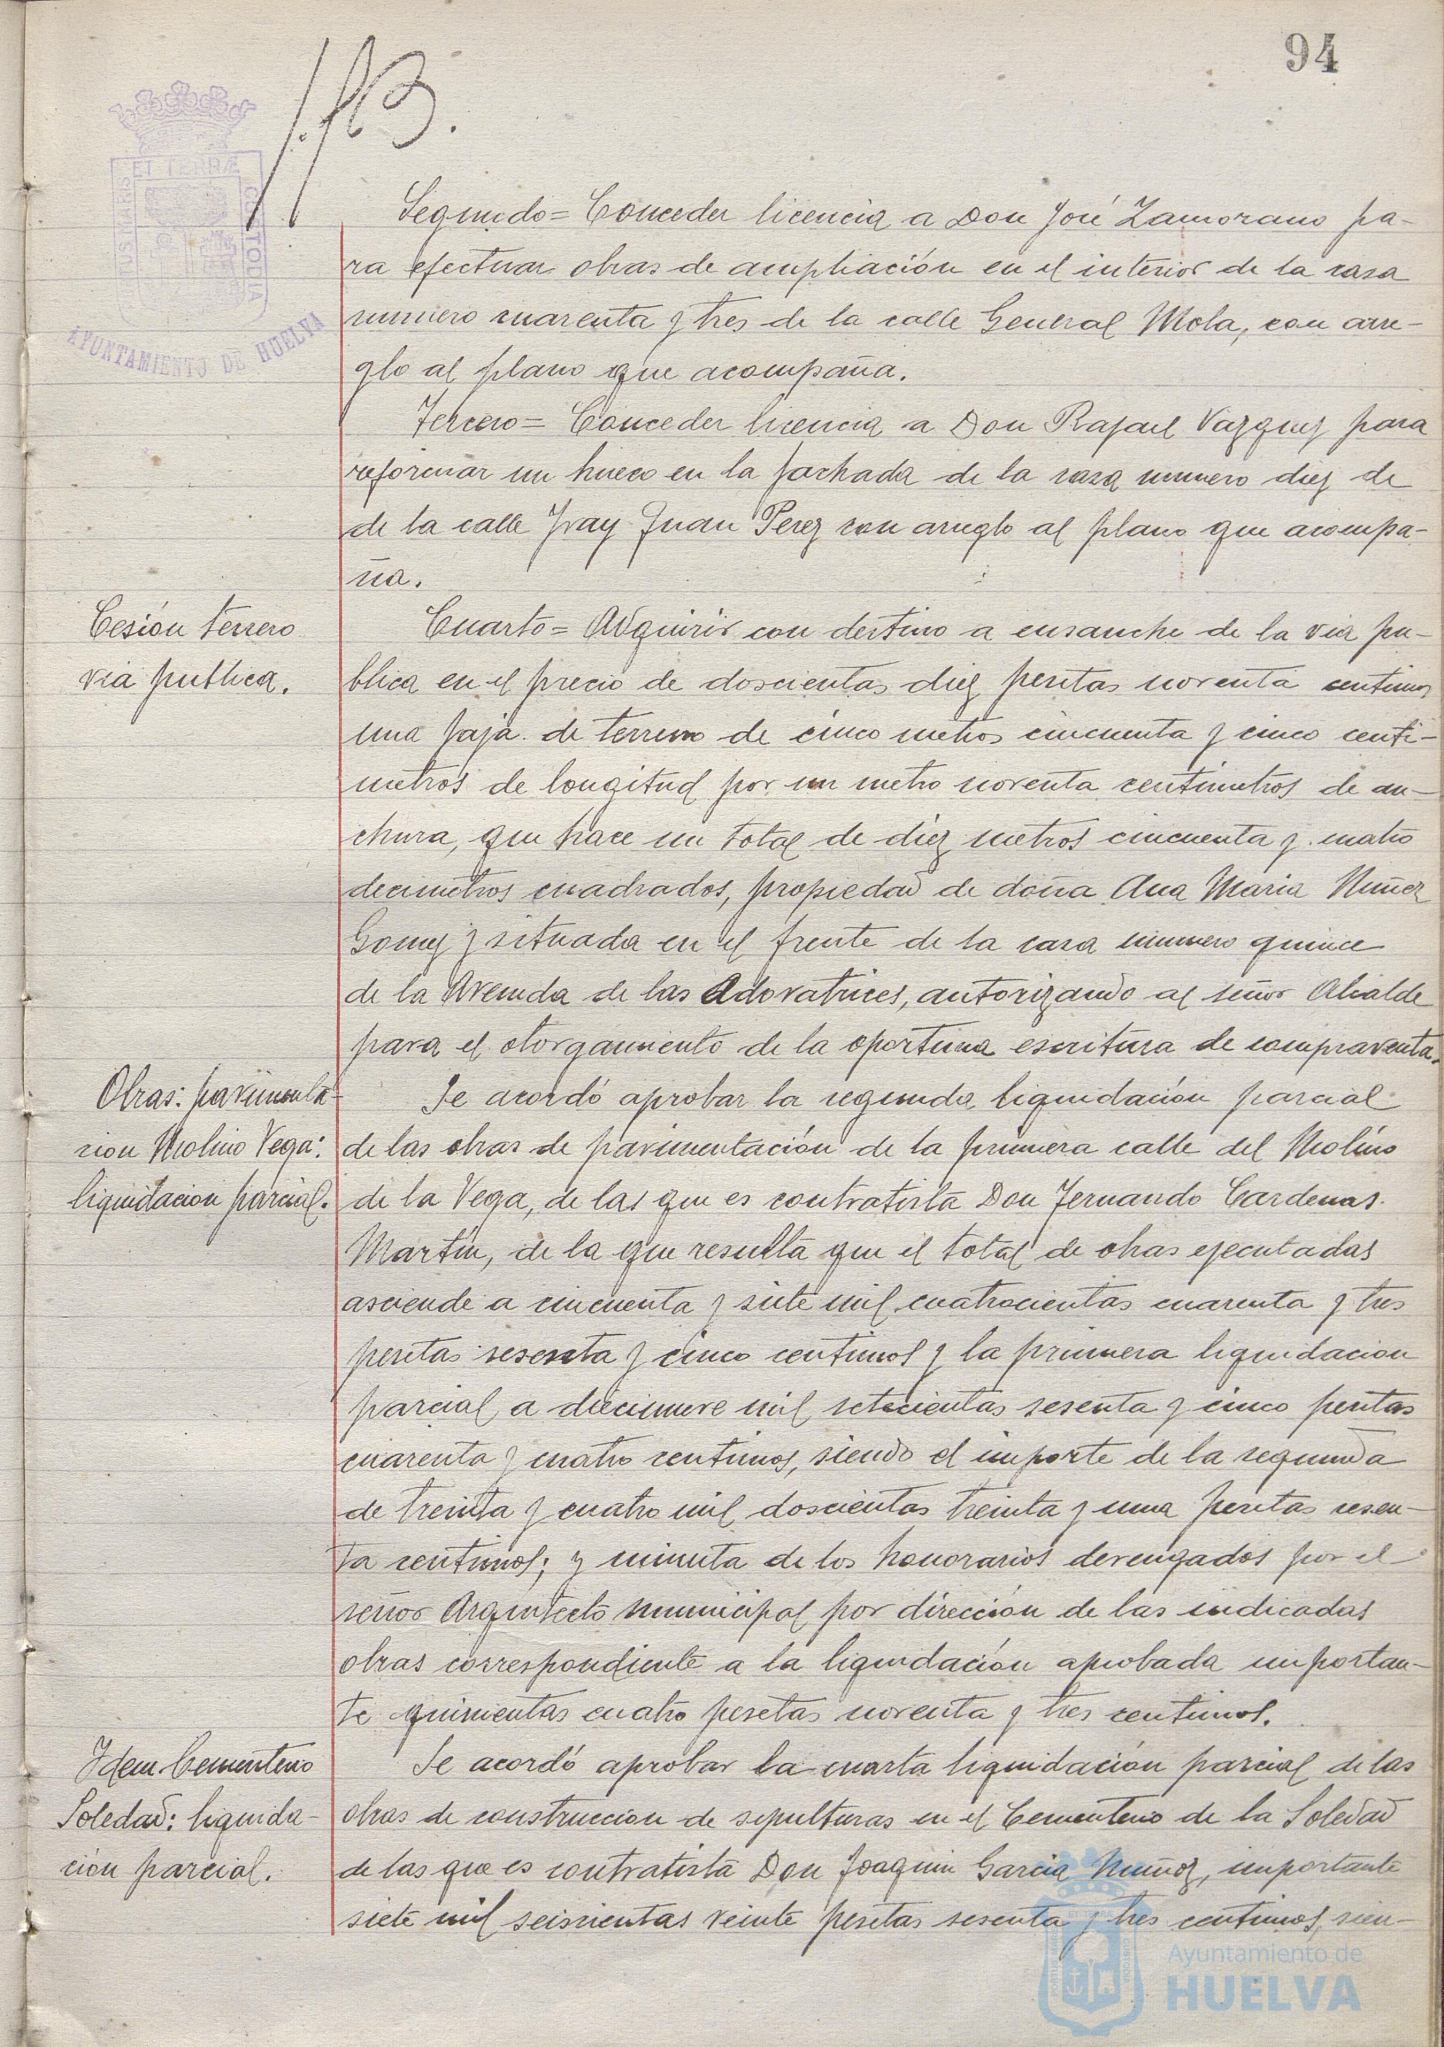 94
ET TERRÆ
CUSTODIA
AYUNTAMIENTO DE HUELVA
Segundo= Conceder licencia a Don José Zamorano pa-
ra efectuar obras de ampliación en el interior de la casa
numero cuarenta y tres de la calle General Mola, con arre-
glo al plano que acompaña.
Tercero= Conceder licencia a Don Rafael Vazquez para
reformar un hueco en la fachada de la casa numero diez de
de la calle Fray Juan Perez con arreglo al plano que acompa-
ña.
Cesión terreno
via publica.
Cuarto= Adquirir con destino a ensanche de la via pu-
blica en el precio de doscientas diez pesetas noventa centimos
una faja de terreno de cinco metros cincuenta y cinco centi-
metros de longitud por un metro noventa centimetros de an-
chura, que hace un total de diez metros cincuenta y cuatro
decimetros cuadrados, propiedad de doña Ana Maria Nuñez
Gomez y situada en el frente de la casa numero quince
de la Avenida de las Adoratrices, autorizando al señor Alcalde
para el otorgamiento de la oportuna escritura de compraventa.
Obras: pavimenta-
cion Molino Vega:
liquidacion parcial.
Se acordó aprobar la segunda liquidación parcial
de las obras de pavimentación de la primera calle del Molino
de la Vega, de las que es contratista Don Fernando Cardenas
Martín, de la que resulta que el total de obras ejecutadas
asciende a cincuenta y siete mil cuatrocientas cuarenta y tres
pesetas sesenta y cinco centimos y la primera liquidacion
parcial a diecinueve mil setecientas sesenta y cinco pesetas
cuarenta y cuatro centimos, siendo el importe de la segunda
de treinta y cuatro mil doscientas treinta y una pesetas sesen-
ta centimos; y minuta de los honorarios devengados por el
señor Arquitecto municipal por dirección de las indicadas
obras correspondiente a la liquidación aprobada importan-
te quinientas cuatro pesetas noventa y tres centimos.
Idem Cementerio
Soledad: liquida-
ción parcial.
Se acordó aprobar la cuarta liquidación parcial de las
obras de construccion de sepulturas en el Cementerio de la Soledad
de las que es contratista Don Joaquin Garcia Muñoz, importante
siete mil seiscientas veinte pesetas sesenta y tres centimos, sien-
Ayuntamiento de
HUELVA